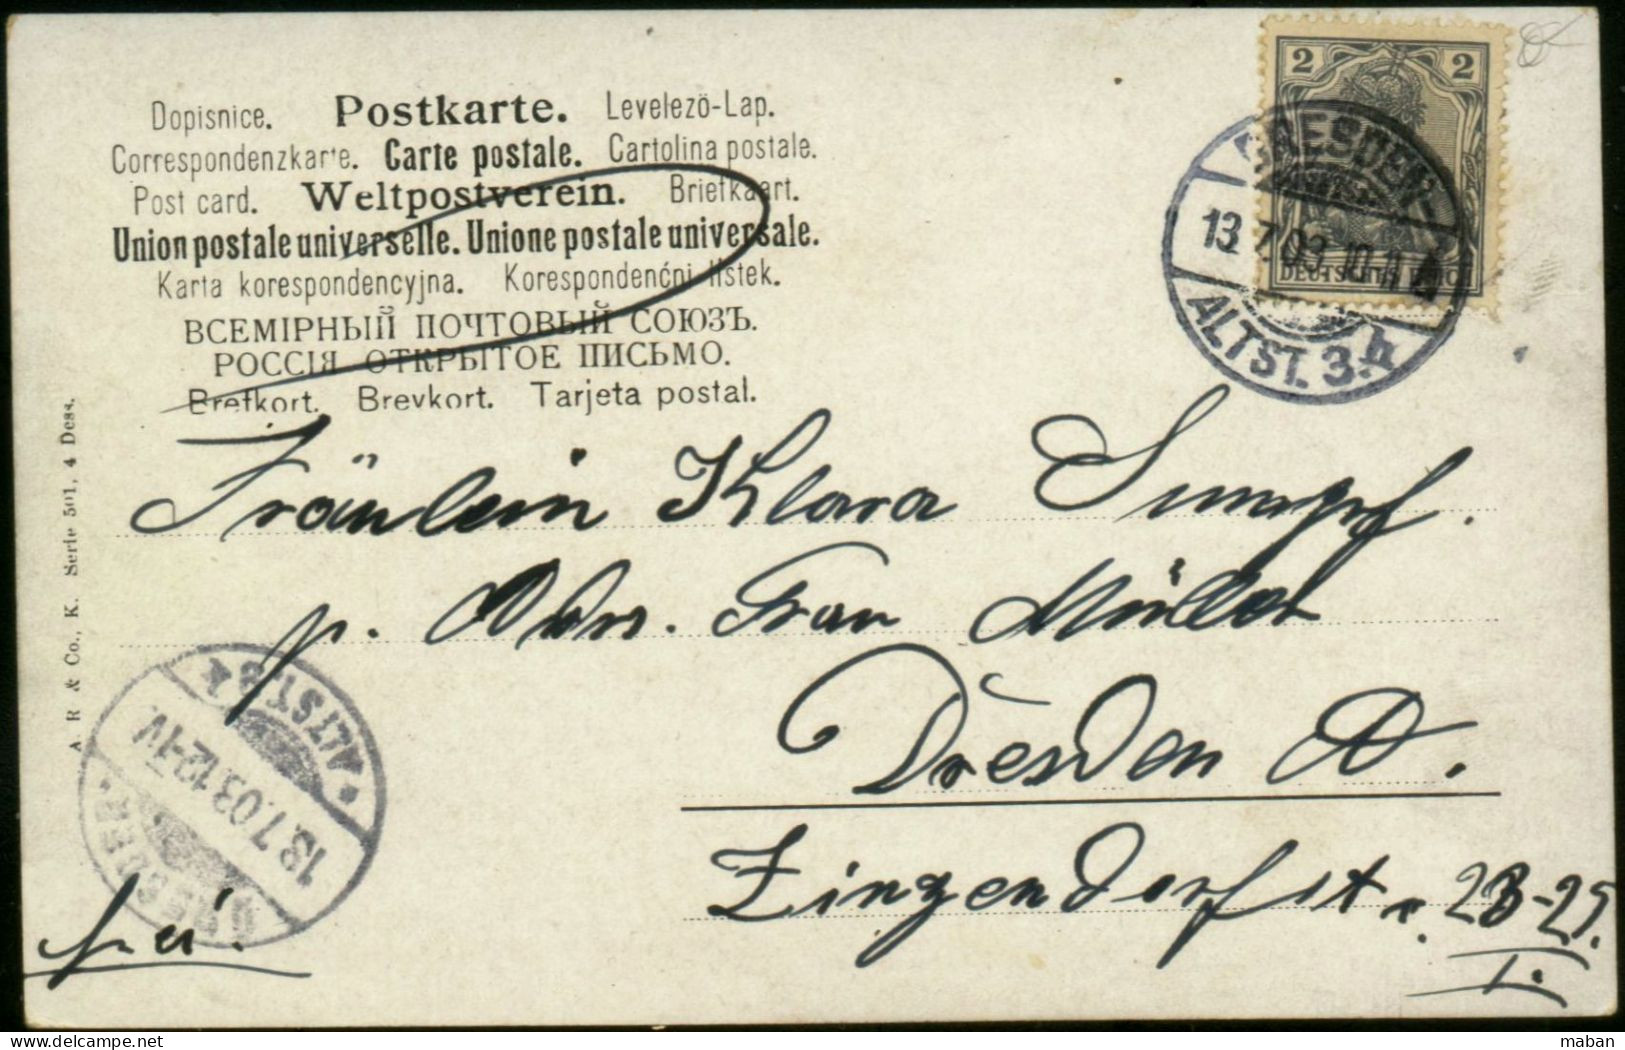 Dopisnice. Postkarte. Levelező-Lap.
Correspondenzkarte. Carte postale. Cartolina postale.
Post card. Weltpostverein. Briefkaart.
Union postale universelle. Unione postale universale.
Karta korespondencyjna. Korespondenćni lístek.
ВСЕМІРНЫЙ ПОЧТОВЫЙ СОЮЗЪ.
РОССІЯ ОТКРЫТОЕ ПИСЬМО.
Brefkort. Brevkort. Tarjeta postal.
2 2
DEUTSCHES REICH
DRESDEN-
13.7.03.10-11
ALTST. 3.h
Fräulein Klara Sumpf.
p. Adr. Frau Müller
Dresden A.
Zinzendorfstr. 23-25.
I.
frei.
DRESDEN
13.7.03.12-1V.
ALTST. 3. k
A. R & Co., K. Serie 501, 4 Dess.
maban